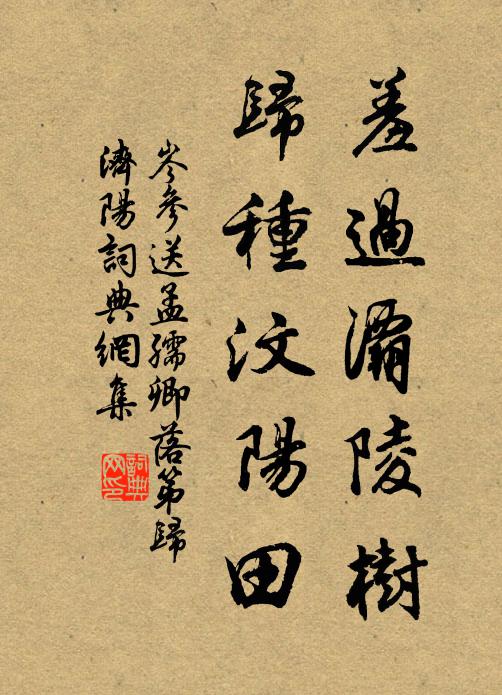 羞過灞陵樹
歸種汶陽田
岑參送孟孺卿落第歸
濟陽詞典網集
詞典
网印